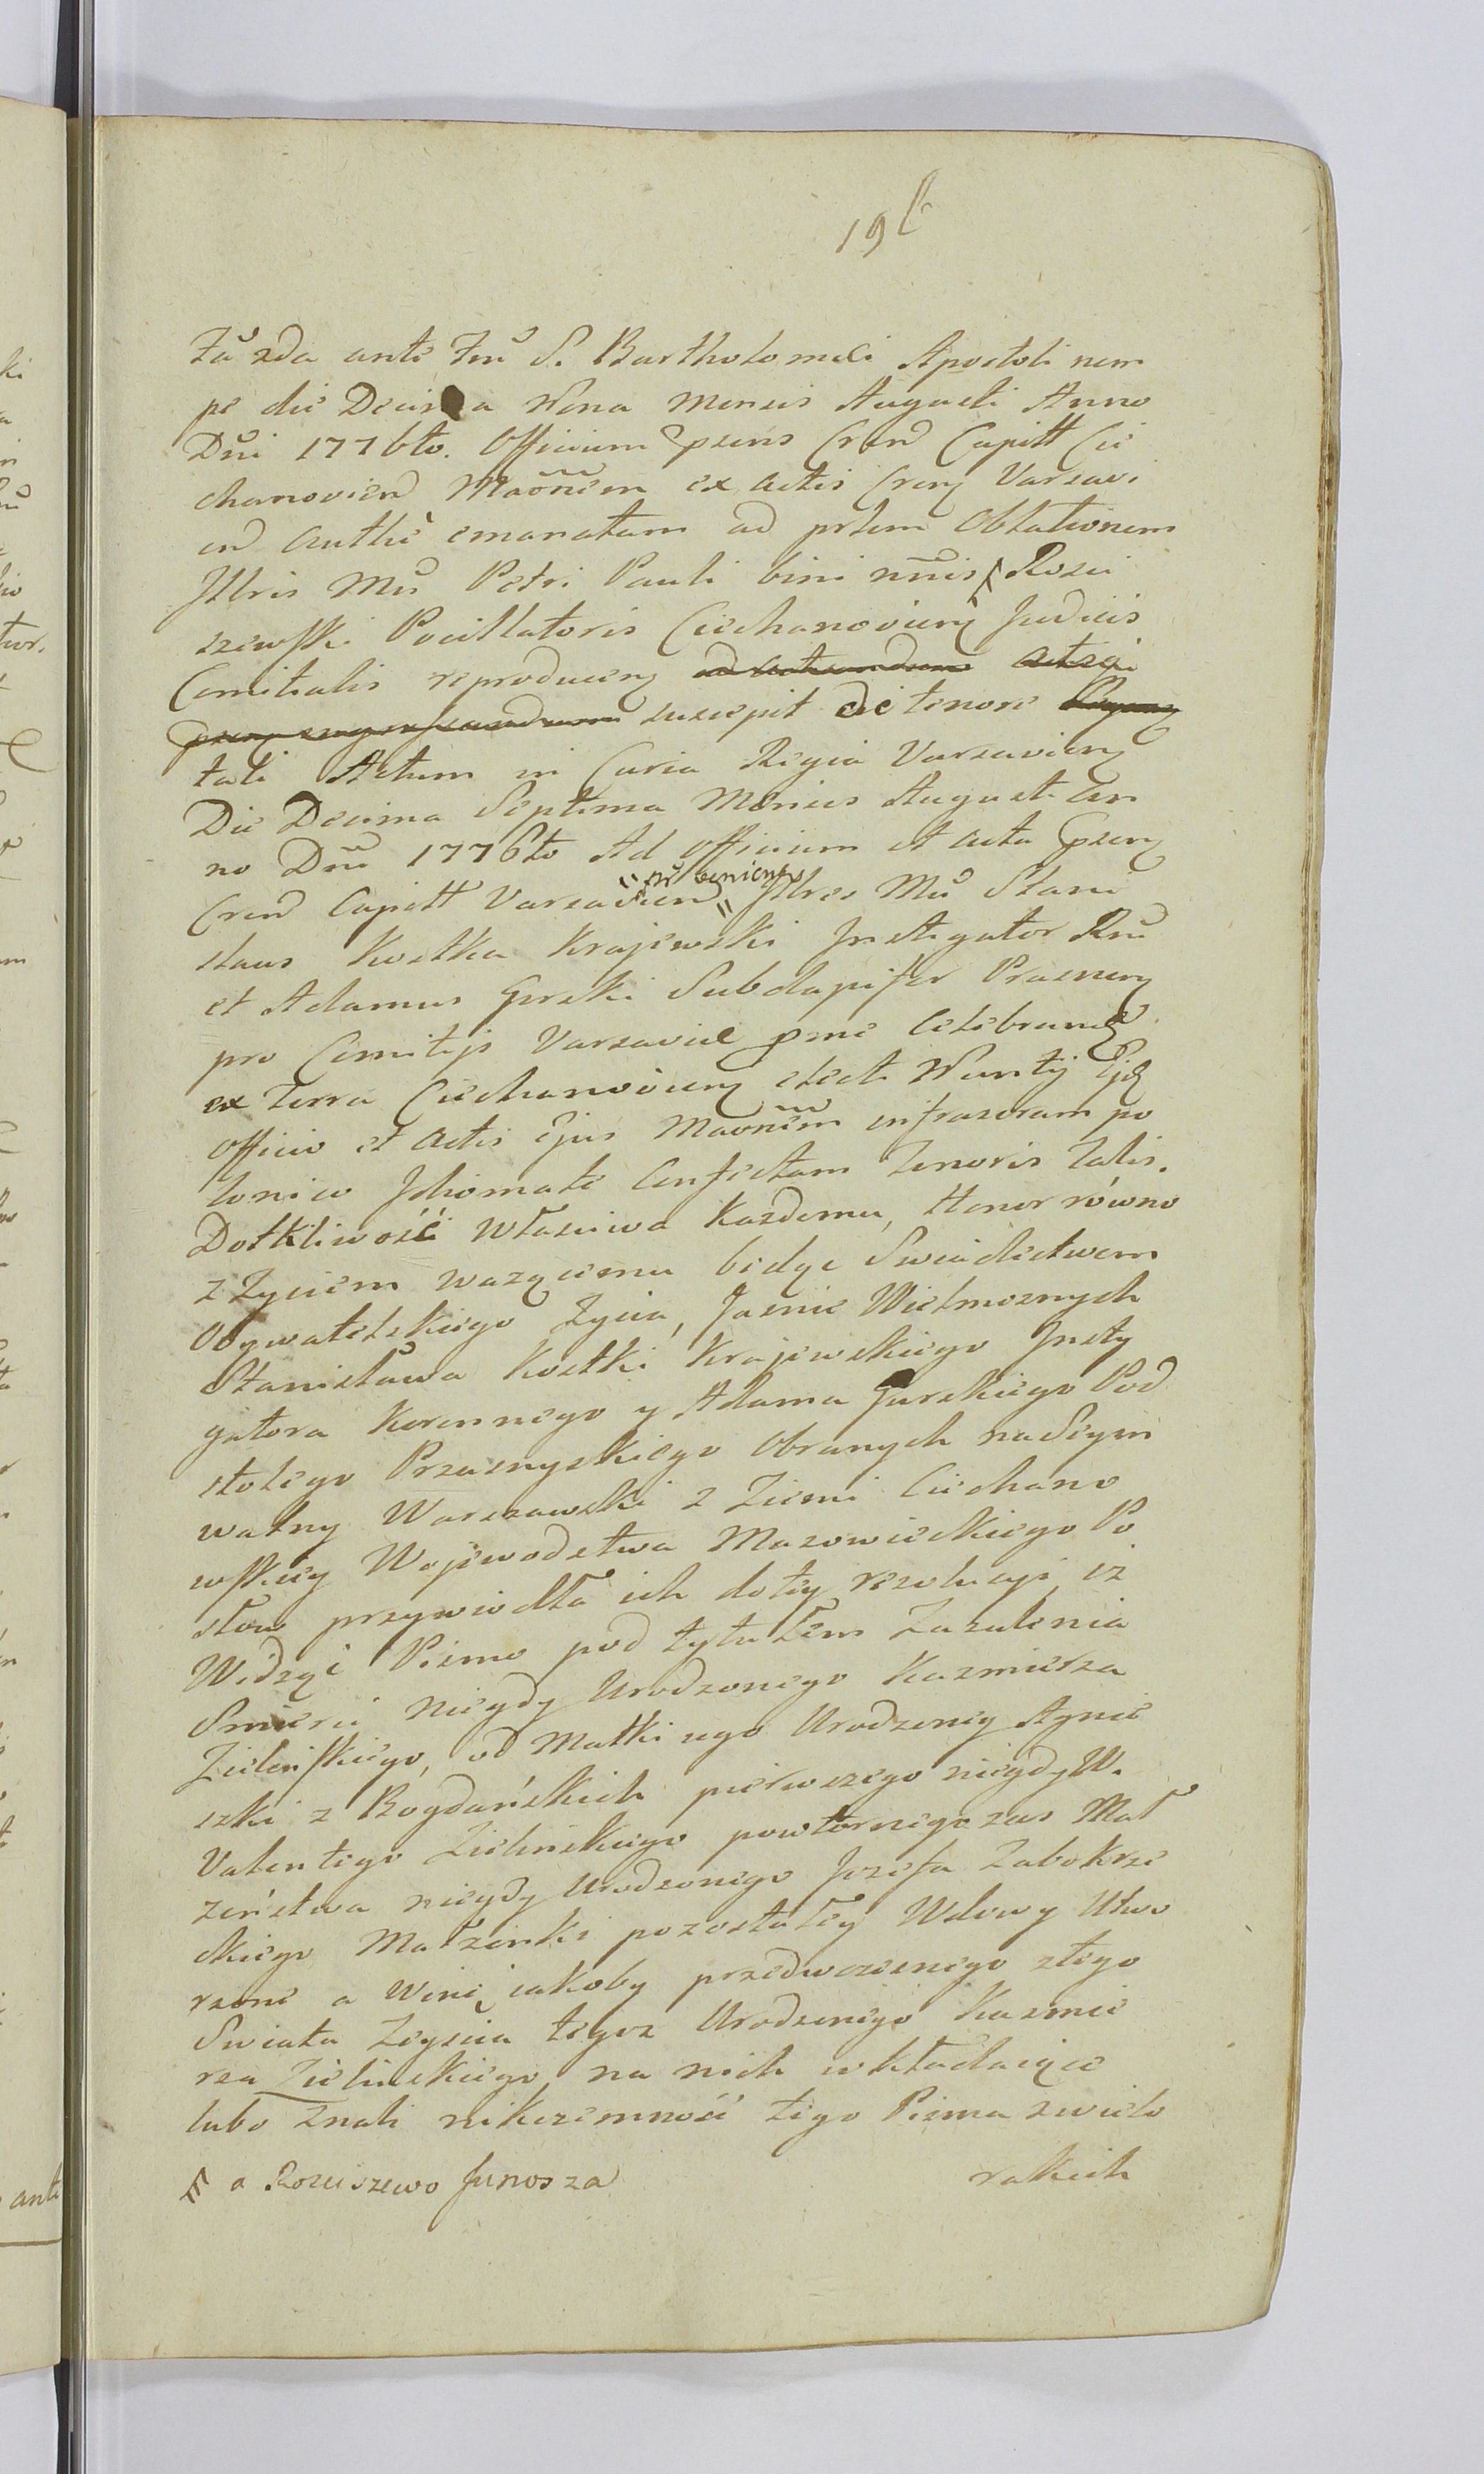 19
ria 2da ante Fm̃ S. Bartholomei Apostoli nem
pe die Decima Nona Mensis Augusti Anno
Dñi 1776to. Officium pzens Cren Capitt Cie
chanovien Maõñem ex actis Cren Varsavi
en authe emanatam ad prlem Oblationem
Illris Mũ Petri Pauli bini nñis Rosci
szewski Pocillatoris Ciechanovien Judicis
Comitialis reproducen ad acticandum actisq
suscepit de tenore
tali Actum in Curia Regia Varsavien
Die Decima Septima Mensis Augusti An
no Dñi 1776to Ad Officium et acta pzen
Cren Capitt Varsavien Illres Mũ Stani
" pr venientes
slaus Kostka Krajewski Instigator Rni
et Adamus Gorski Subdapifer Prasnen
pro Comitijs Varsaviae pme Celebran
ex Terra Ciechanovien elect Nuntij Eid
officio et actis ejus Maoñem infrascram po
lonico Idiomate Confectam Tenoris Talis.
Dotkliwość właściwa każdemu, Honor równo
z Zyciem wazącemu będąc Swiadectwem
Obywatelskiego Zycia, Jasnie Wielmoznych
Stanisława Kostki Krajewskiego Insty
gatora Koronnego y Adama Gurskiego Pod
stolego Przasnyskiego Obranych na Seym
walny Warszawski z Ziemi Ciechano
wskiey Wojewodztwa Mazowieckiego Po
słow przywiodła ich do tey rezolucyi, iż
Widząc Pismo pod tytułem Zazalenia
Smierci niegdy Urodzonego Kazmierza
Zielinskiego, od Matki iego Urodzoney Agnie
szki z Bogdańskich pierwszego niegdy W.
Valentego Zielinskiego powtornego zas Mał
zeństwa niegdy Urodzonego Jozefa Zabokrze
ckiego Małzonki pozostałey Wdowy Utwo
rzone a winę iakoby przedwczesnego z tego
Swiata Zeyscia tegoz Urodzonego Kazmie
rza Zielinskiego na nich wkładaiące
lubo znali nikczemność tego Pisma z wielo
rakich
a Rosciszewo Junosza